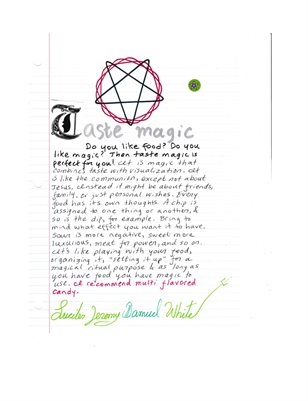 Taste magic
Do you like food? Do you
like magic? Then taste magic is
perfect for you! It is magic that
combines taste with visualization. It
is like the communion, except not about
Jesus. Instead it might be about friends,
family, or just personal wishes. Every
food has its own thoughts. A chip is
assigned to one thing or another, &
so is the dip, for example. Bring to
mind what effect you want it to have.
Sour is more negative, sweet more
luxurious, meat for power, and so on.
It's like playing with your food,
organizing it, "setting it up" for a
magical ritual purpose & as long as
you have food you have magic to
use. I recommend multi flavored
candy.
Lucifer Jeremy Damuel White